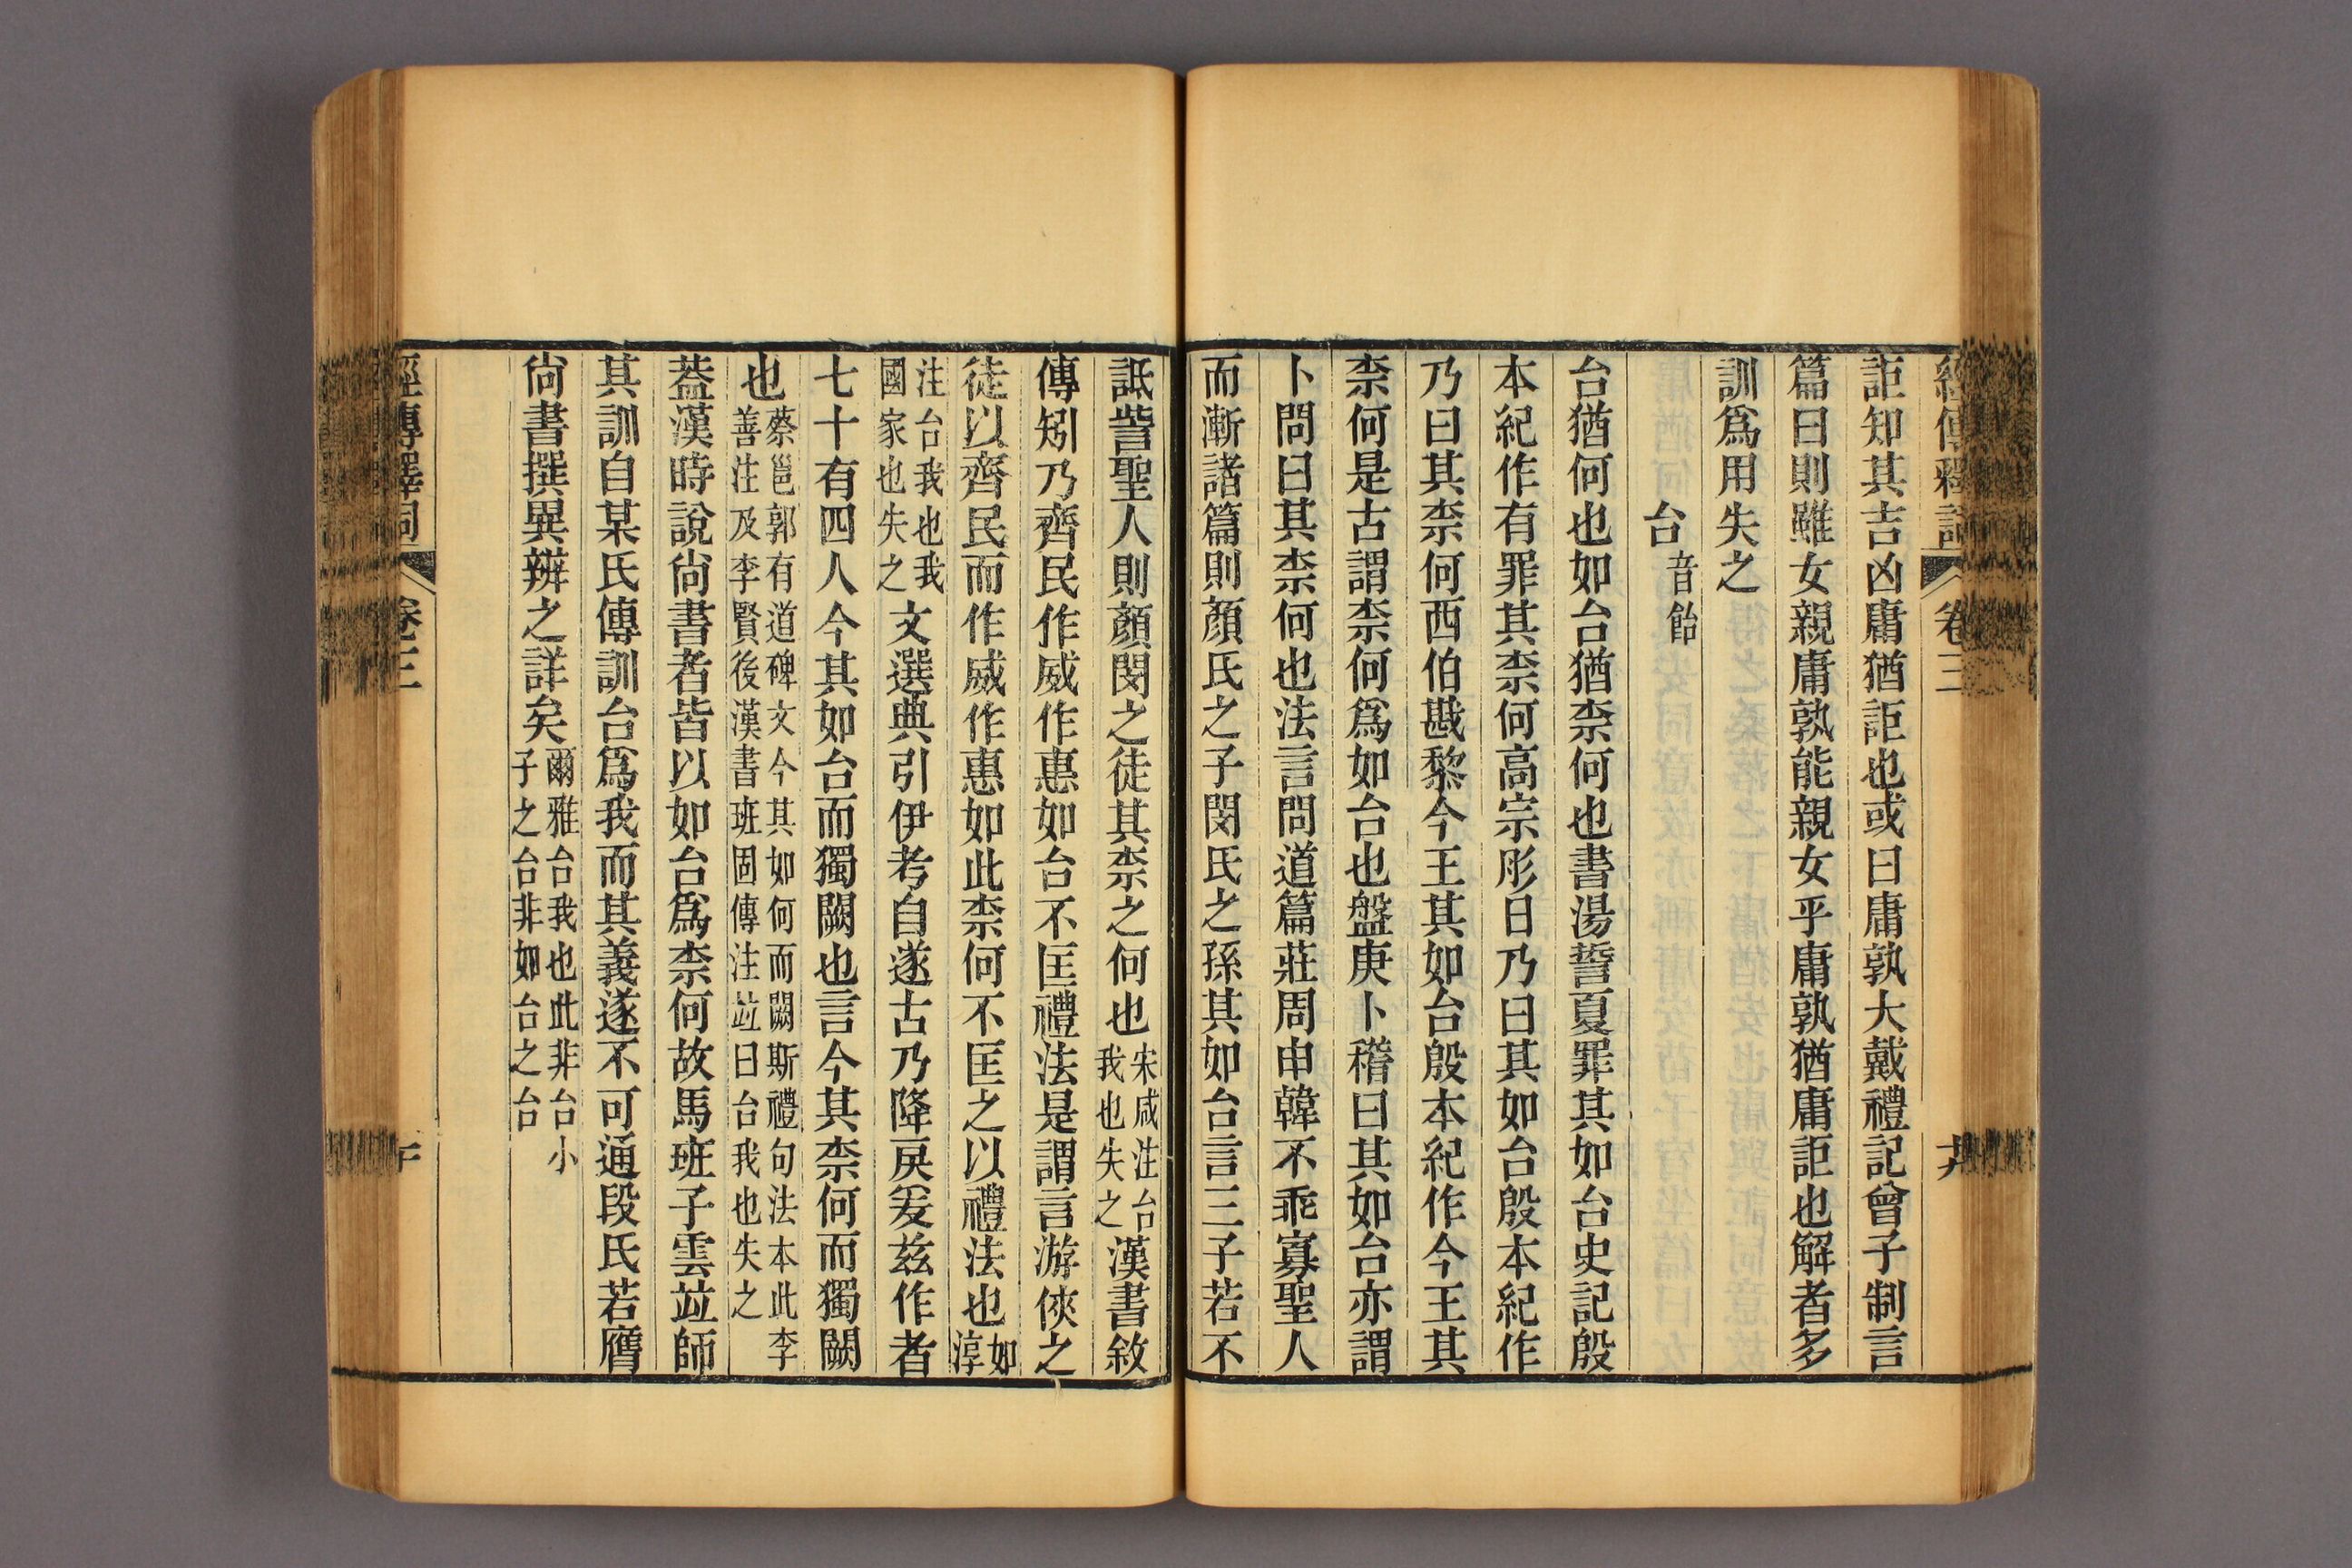 經傳釋詞 卷三
詎知其吉凶庸猶詎也或曰庸孰大戴禮記曾子制言
篇曰則雖女親庸孰能親女乎庸孰猶庸詎也解者多
訓爲用失之
台音飴
台猶何也如台猶柰何也書湯誓夏罪其如台史記殷
本紀作有罪其柰何高宗肜日乃曰其如台殷本紀作
乃曰其柰何西伯戡黎今王其如台殷本紀作今王其
柰何是古謂柰何爲如台也盤庚卜稽曰其如台亦謂
卜問曰其柰何也法言問道篇莊周申韓不乖寡聖人
而漸諸篇則顏氏之子閔氏之孫其如台言三子若不
詆訾聖人則顏閔之徒其柰之何也宋咸注台我也失之漢書敘
傳矧乃齊民作威作惠如台不匡禮法是謂言游俠之
徒以齊民而作威作惠如此柰何不匡之以禮法也如淳
注台我也我國家也失之文選典引伊考自遂古乃降戾爰茲作者
七十有四人今其如台而獨闕也言今其柰何而獨闕
也蔡邕郭有道碑文今其如何而闕斯禮句法本此李善注及李賢後漢書班固傳注竝曰台我也失之
葢漢時說尚書者皆以如台爲柰何故馬班子雲竝師
其訓自某氏傳訓台爲我而其義遂不可通段氏若膺
尚書撰異辨之詳矣爾雅台我也此非台小子之台非如台之台
經傳釋詞 卷三